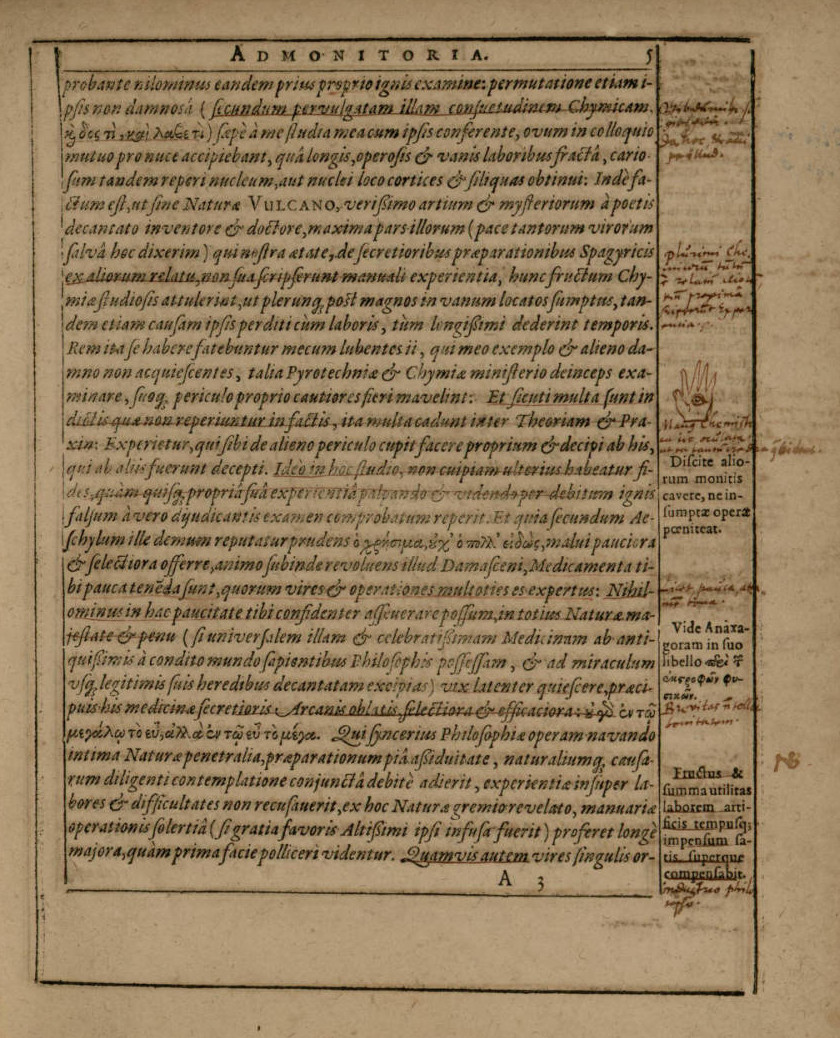 ADMONITORIA. 5
probante nilominus eandem prius proprio ignis examine: permutatione etiam i-
psis non damnosâ (secundum pervulgatam illam consuetudinem Chymicam,
δός τι, καὶ λαβέ τι) sæpè à me studia mea cum ipsis conferente, ovum in colloquio
mutuo pro nuce accipiebant, quâ longis, operosis & vanis laboribus fractâ, cario-
sum tandem reperi nucleum, aut nuclei loco cortices & siliquas obtinui: Indè fa-
ctum est, ut sine Naturæ VULCANO, verißimo artium & mysteriorum à poetis
decantato inventore & doctore, maxima pars illorum (pace tantorum virorum
salvâ hoc dixerim) qui nostra ætate, de secretioribus præparationibus Spagyricis
ex aliorum relatu, non sua scripserunt manuali experientia, hunc fructum Chy-
miæ studiosis attulerint, ut plerunq; post magnos in vanum locatos sumptus, tan-
dem etiam causam ipsis perditi cùm laboris, tùm longißimi dederint temporis.
Rem ita se habere fatebuntur mecum lubentes ii, qui meo exemplo & alieno da-
mno non acquiescentes, talia Pyrotechniæ & Chymiæ ministerio deinceps exa-
minare, suoq; periculo proprio cautiores fieri mavelint: Et sicuti multa sunt in
dictis quæ non reperiuntur in factis, ita multa cadunt inter Theoriam & Pra-
xin: Experietur, qui sibi de alieno periculo cupit facere proprium & decipi ab his,
qui ab aliis fuerunt decepti. Ideò in hoc studio, non cuipiam ulterius habeatur fi-
des, quàm quisq; propriâ suâ experientiâ palpando & videndo per debitum ignis
falsum à vero dijudicantis examen comprobatum reperit. Et quia secundum Ae-
schylum ille demum reputatur prudens ὁ χρήσιμα, οὐχ' ὁ πόλλ' εἰδὼς, malui pauciora
& selectiora offerre, animo subinde revoluens illud Damasceni, Medicamenta ti-
bi pauca tenēda sunt, quorum vires & operationes multoties es expertus: Nihil-
ominus in hac paucitate tibi confidenter asseuerare possum, in totius Naturæ ma-
jestate & penu (si universalem illam & celebratißimam Medicinam ab anti-
quißimis à condito mundo sapientibus Philosophis possessam, & ad miraculum
usq; legitimis suis heredibus decantatam excipias) vix latenter quiescere, præci-
puis his medicinæ secretioris Arcanis oblatis, selectiora & efficaciora: ἐν τῷ
μεγάλῳ τὸ εὖ, ἀλλὰ ἐν τῷ εὖ τὸ μέγα. Qui syncerius Philosophiæ operam navando
intima Naturæ penetralia, præparationum piâ aßiduitate, naturaliumq; causa-
rum diligenti contemplatione conjunctâ debitè adierit, experientiæ insuper la-
bores & difficultates non recusauerit, ex hoc Naturæ gremio revelato, manuariæ
operationis solertiâ (si gratia favoris Altißimi ipsi infusa fuerit) proferet longè
majora, quàm prima facie polliceri videntur. Quamvis autem vires singulis or-
A 3
Discite alio-
rum monitis
cavere, ne in-
sumptæ operæ
pœniteat.
Vide Anaxa-
goram in suo
libello
Fructus &
summa utilitas
laborem arti-
ficis tempusq;
impensum sa-
tis superque
compensabit.
NB